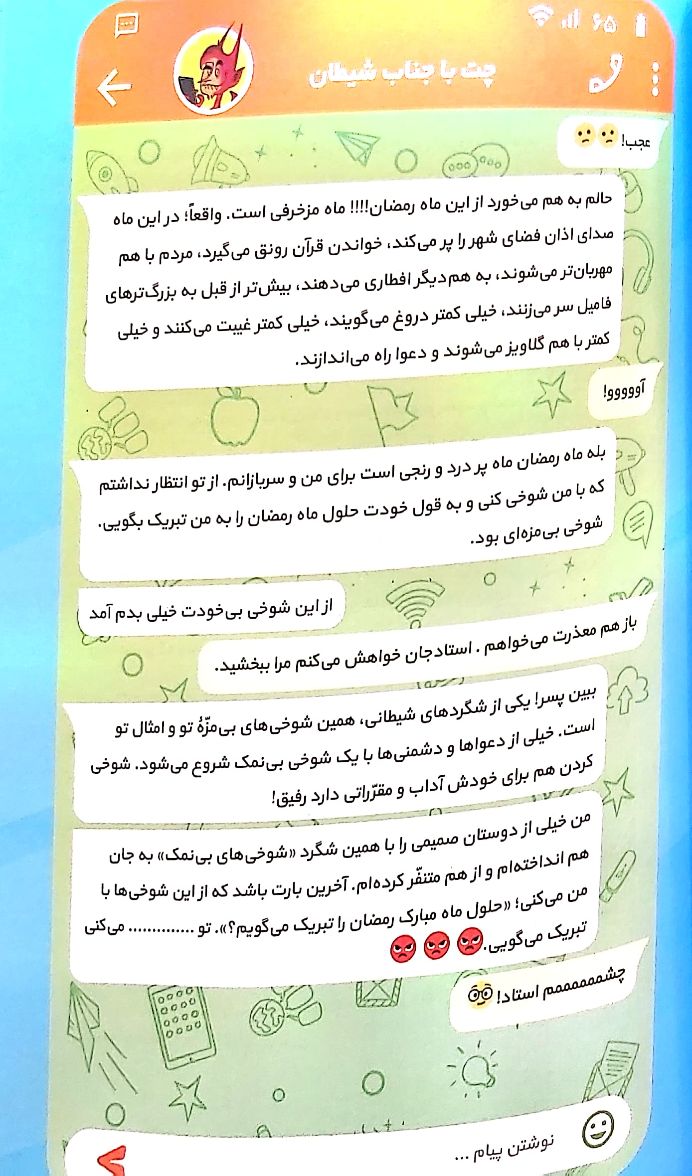 ۶۵
چت با جناب شیطان
عجب!
حالم به هم می‌خورد از این ماه رمضان!!!! ماه مزخرفی است. واقعاً؛ در این ماه
صدای اذان فضای شهر را پر می‌کند، خواندن قرآن رونق می‌گیرد، مردم با هم
مهربان‌تر می‌شوند، به هم‌دیگر افطاری می‌دهند، بیش‌تر از قبل به بزرگ‌ترهای
فامیل سر می‌زنند، خیلی کمتر دروغ می‌گویند، خیلی کمتر غیبت می‌کنند و خیلی
کمتر با هم گلاویز می‌شوند و دعوا راه می‌اندازند.
آووووو!
بله ماه رمضان ماه پر درد و رنجی است برای من و سربازانم. از تو انتظار نداشتم
که با من شوخی کنی و به قول خودت حلول ماه رمضان را به من تبریک بگویی.
شوخی بی‌مزه‌ای بود.
از این شوخی بی‌خودت خیلی بدم آمد
باز هم معذرت می‌خواهم . استادجان خواهش می‌کنم مرا ببخشید.
ببین پسر! یکی از شگردهای شیطانی، همین شوخی‌های بی‌مزّهٔ تو و امثال تو
است. خیلی از دعواها و دشمنی‌ها با یک شوخی بی‌نمک شروع می‌شود. شوخی
کردن هم برای خودش آداب و مقرّراتی دارد رفیق!
من خیلی از دوستان صمیمی را با همین شگرد «شوخی‌های بی‌نمک» به جان
هم انداخته‌ام و از هم متنفّر کرده‌ام. آخرین بارت باشد که از این شوخی‌ها با
من می‌کنی؛ «حلول ماه مبارک رمضان را تبریک می‌گویم؟». تو .............. می‌کنی
تبریک می‌گویی.
چشمممممم استاد!
نوشتن پیام ...